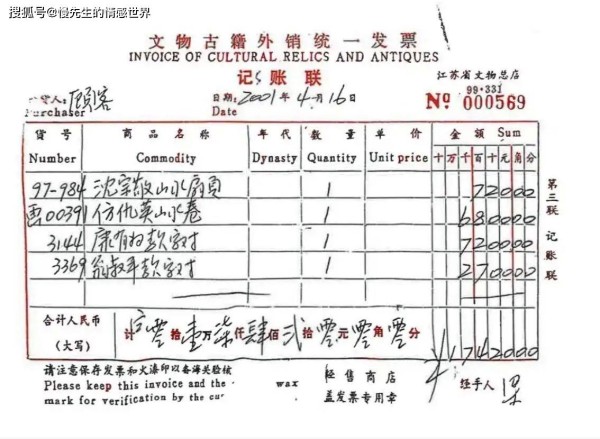 搜狐号@慢先生的情感世界
文物古籍外销统一发票
INVOICE OF CULTURAL RELICS AND ANTIQUES
记账联
江苏省文物总店
99·331
顾客
Purchaser
日期: 2001年4月16日
Date
No 000569
货号 商品名称 年代 数量 单价 金额 Sum
Number Commodity Dynasty Quantity Unit price 十万千百十元角分
97-984 沈宗敬山水扇页 1 72000
画00391 仿仇英山水卷 1 680000
3144 康有为款字对 1 720000
3369 翁叔平款字对 1 270000
第三联 记账联
合计人民币
(大写)
计 零拾壹万柒仟肆佰贰拾零元零角零分 1742000
请注意保存发票和火漆印以备海关验核
Please keep this invoice and the wax
mark for verification by the cus
经售商店
盖发票专用章
经手人